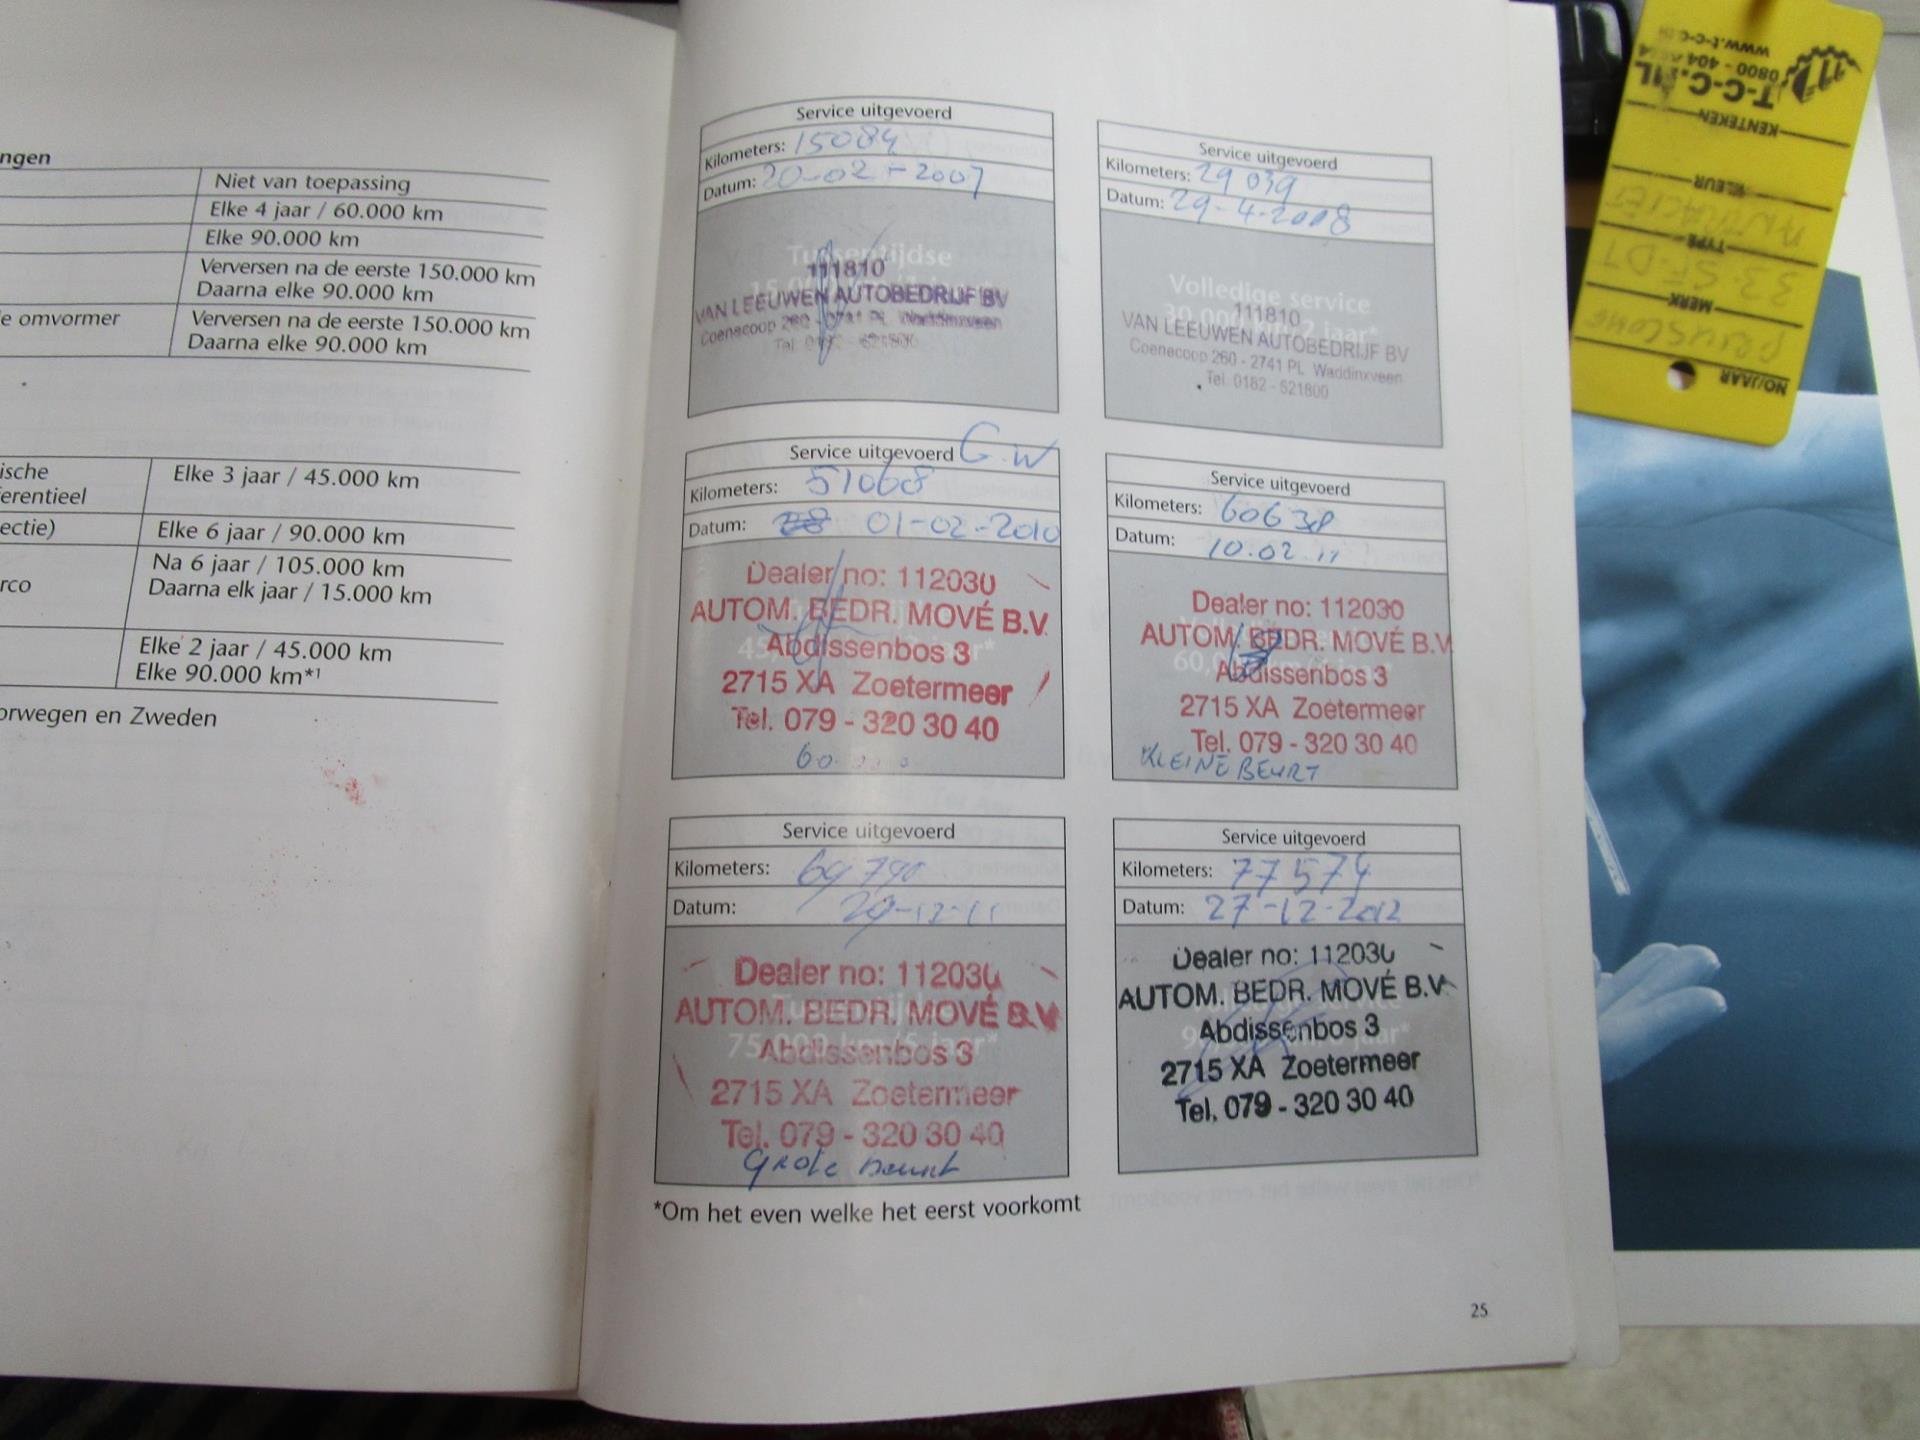 ngen
Niet van toepassing
Elke 4 jaar / 60.000 km
Elke 90.000 km
Verversen na de eerste 150.000 km
Daarna elke 90.000 km
le omvormer
Verversen na de eerste 150.000 km
Daarna elke 90.000 km
ische
ferentieel
Elke 3 jaar / 45.000 km
ectie)
Elke 6 jaar / 90.000 km
rco
Na 6 jaar / 105.000 km
Daarna elk jaar / 15.000 km
Elke 2 jaar / 45.000 km
Elke 90.000 km*1
orwegen en Zweden
Service uitgevoerd
Kilometers: 15084
Datum: 20-02-2007
Tussentijdse
111810
VAN LEEUWEN AUTOBEDRIJF BV
Coenecoop 260 - 2741 PL Waddinxveen
Tel. 0182 - 521800
Service uitgevoerd
Kilometers: 29039
Datum: 29-4-2008
Volledige service
30.000 km/2 jaar*
111810
VAN LEEUWEN AUTOBEDRIJF BV
Coenecoop 260 - 2741 PL Waddinxveen
Tel. 0182 - 521800
Service uitgevoerd G.W
Kilometers: 51068
Datum: 01-02-2010
Dealer no: 112030
AUTOM. BEDR. MOVÉ B.V.
Abdissenbos 3
2715 XA Zoetermeer
Tel. 079 - 320 30 40
Service uitgevoerd
Kilometers: 60638
Datum: 10.02.11
Dealer no: 112030
AUTOM. BEDR. MOVÉ B.V
Abdissenbos 3
2715 XA Zoetermeer
Tel. 079 - 320 30 40
KLEINE BEURT
Service uitgevoerd
Kilometers: 69790
Datum: 29-12-11
Dealer no: 112030
AUTOM. BEDR. MOVÉ B.V
75.000 km/5 jaar*
Abdissenbos 3
2715 XA Zoetermeer
Tel. 079 - 320 30 40
Grote beurt
Service uitgevoerd
Kilometers: 77574
Datum: 27-12-2012
Dealer no: 112030
AUTOM. BEDR. MOVÉ B.V.
Abdissenbos 3
2715 XA Zoetermeer
Tel. 079 - 320 30 40
*Om het even welke het eerst voorkomt
25
T-C-C.NL
0800 - 404
www.t-c-c.nl
KENTEKEN
KLEUR
TYPE
33-SF-DT
MERK
NO/JAAR